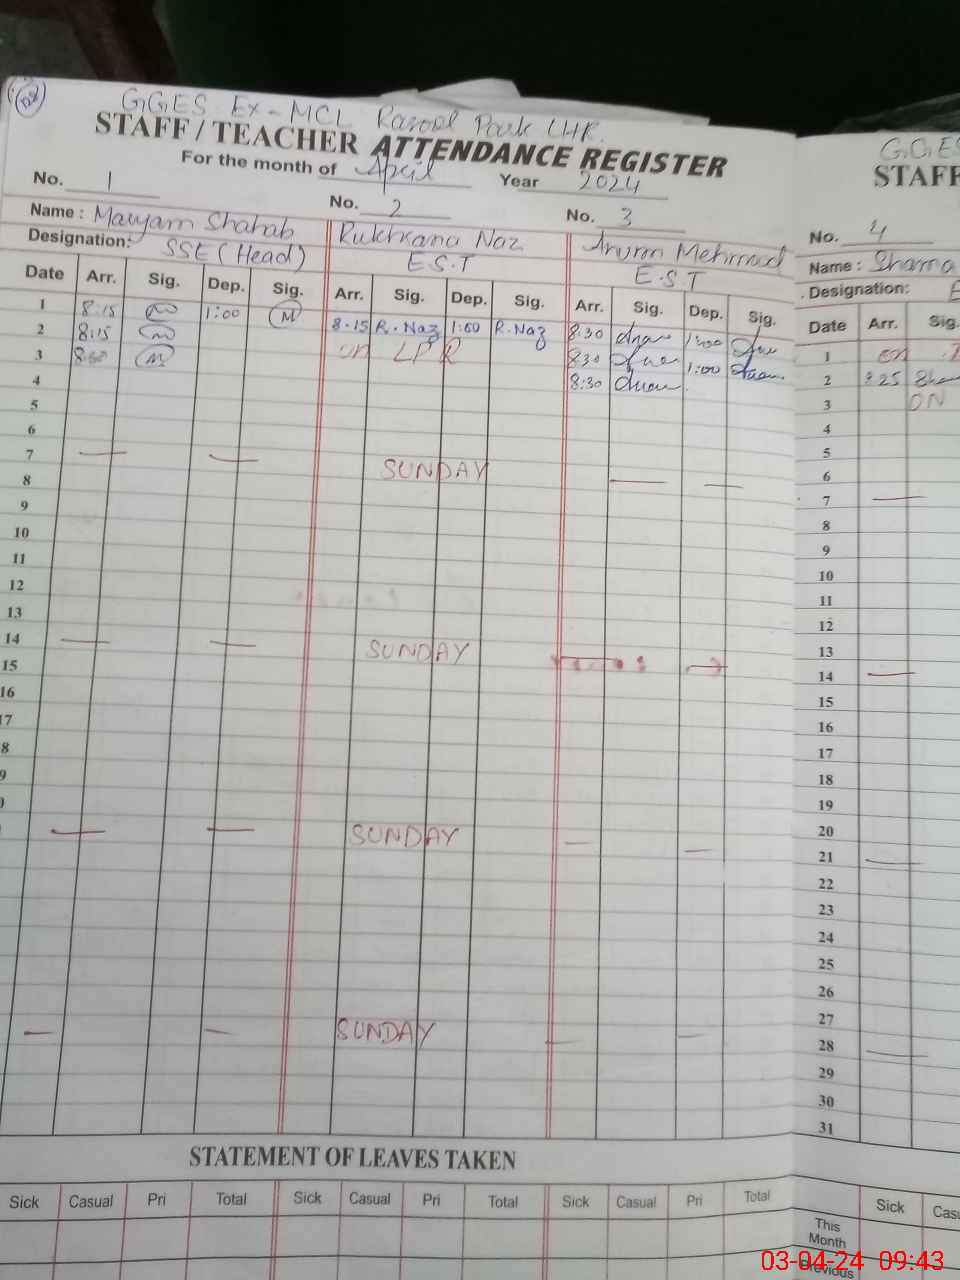 GGES Ex-MCL Rasool Park LHR.
STAFF / TEACHER ATTENDANCE REGISTER
For the month of April Year 2024
No. 1 No. 2 No. 3
Name : Maryam Shahab Rukhsana Naz Mehmood
Designation: SSE (Head) E.S.T E.S.T
Date Arr. Sig. Dep. Sig. Arr. Sig. Dep. Sig. Arr. Sig. Dep. Sig.
1 8:15 1:00 M 8:15 R.Naz 1:00 R.Naz 8:30 1:00
2 8:15 on LPR 8:30 1:00
3 8:00 M 8:30
4
5
6
7 — — SUNDAY — —
8
9
10
11
12
13
14 — — SUNDAY
15
16
17
8
9
— — SUNDAY — —
— — SUNDAY — —
STATEMENT OF LEAVES TAKEN
Sick Casual Pri Total Sick Casual Pri Total Sick Casual Pri Total
GGES
STAFF
No. 4
Name : Shama
Designation: E
Date Arr. Sig.
1 on
2 8:25
3 ON
4
5
6
7 —
8
9
10
11
12
13
14 —
15
16
17
18
19
20
21 —
22
23
24
25
26
27
28 —
29
30
31
Sick Cas
This
Month
Previous
03-04-24 09:43